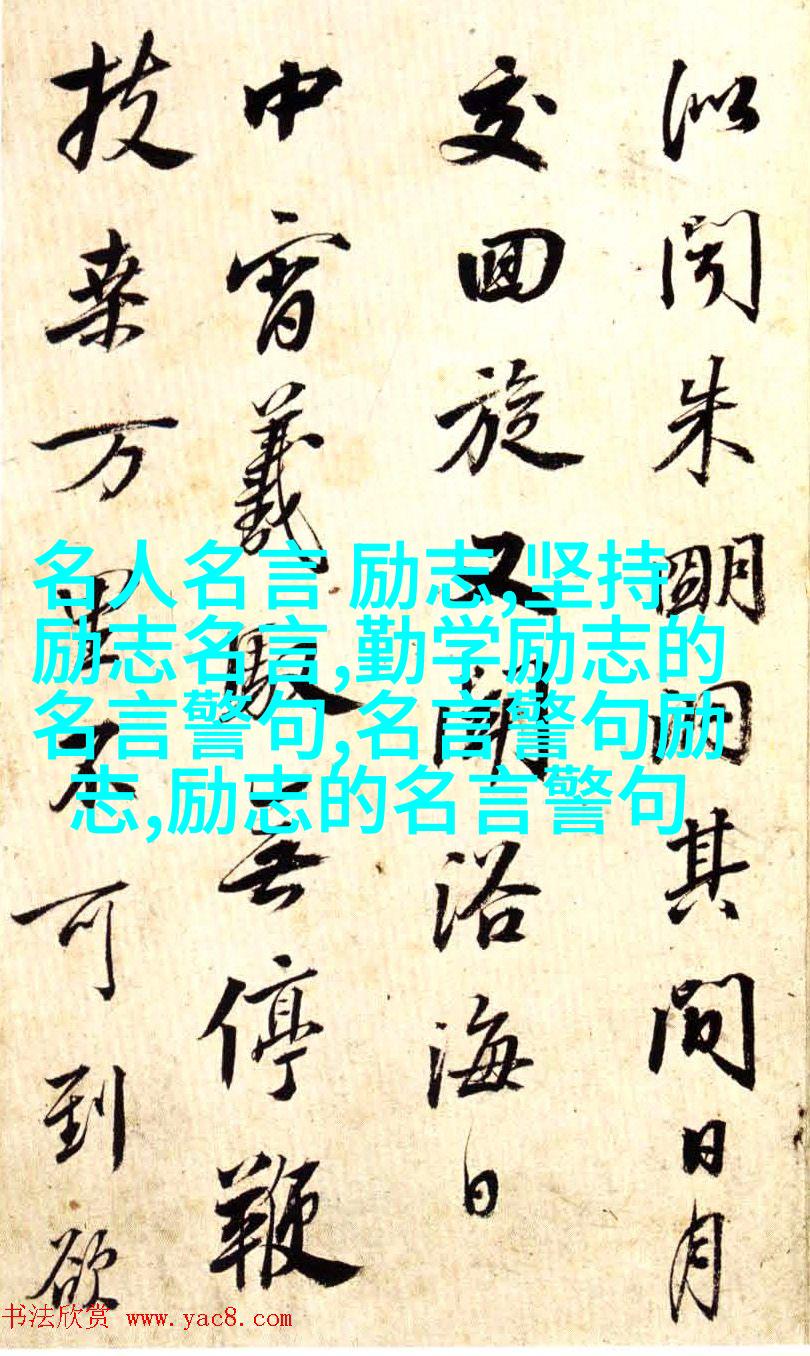 似聞朱明洞其間日月
交回旋又聞浴海日
中宵羲馭無停鞭
扶桑万里不可到欲
名人名言 励志,坚持
励志名言,勤学励志的
名言警句,名言警句励
志,励志的名言警句
书法欣赏 www.yac8.com